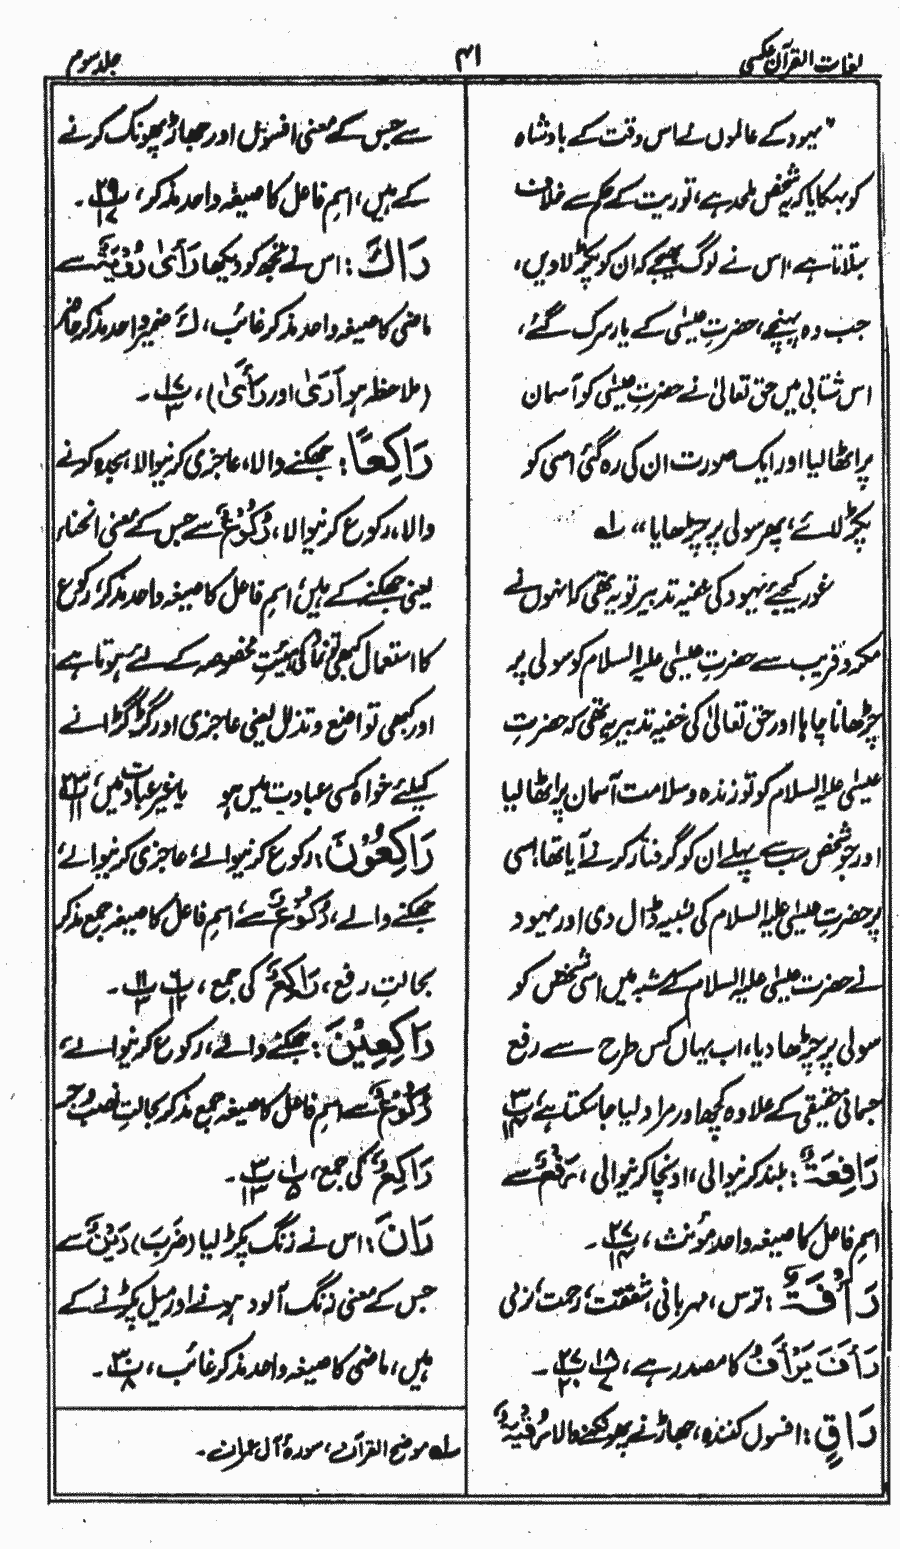 لغات القرآن عکسی
۴۱
جلد سوم
"یہود کے عالموں نے اس وقت کے بادشاہ
کو بہکایا کہ یہ شخص ملحد ہے، توریت کے حکم سے خلاف
بتلاتا ہے، اس نے لوگ بھیجے کہ ان کو پکڑ لاویں،
جب وہ پہنچے، حضرتِ عیسٰی کے یار سرک گئے،
اس شتابی میں حق تعالیٰ نے حضرتِ عیسٰی کو آسمان
پر اٹھا لیا اور ایک صورت ان کی رہ گئی اسی کو
پکڑ لائے، پھر سولی پر چڑھایا" لہ
غور کیجیے یہود کی خفیہ تدبیر تو یہ تھی کہ انہوں نے
مکر و فریب سے حضرتِ عیسٰی علیہ السلام کو سولی پر
چڑھانا چاہا اور حق تعالیٰ کی خفیہ تدبیر یہ تھی کہ حضرتِ
عیسٰی علیہ السلام کو تو زندہ و سلامت آسمان پر اٹھا لیا
اور جو شخص سب سے پہلے ان کو گرفتار کرنے آیا تھا اسی
پر حضرتِ عیسٰی علیہ السلام کی شبیہ ڈال دی اور یہود
نے حضرت عیسٰی علیہ السلام کے شبہ میں اسی شخص کو
سولی پر چڑھا دیا، اب یہاں کس طرح سے رفع
جسمانی حقیقی کے علاوہ کچھ اور مراد لیا جا سکتا ہے،
رَافِعَةٌ : بلند کرنیوالی، اونچا کرنیوالی، رَفْعٌ سے
اسمِ فاعل کا صیغہ واحد مؤنث، ۲۷/۱۴۔
رَأْفَةٌ : ترس، مہربانی، شفقت، رحمت، نرمی
رَأَفَ يَرْأَفُ کا مصدر ہے، ۱۸/۷ ۲۷/۲۰۔
رَاقٍ : افسوں کنندہ، جھاڑنے پھونکنے والا رُقْيَةٌ
سے جس کے معنی افسوں اور جھاڑ پھونک کرنے
کے ہیں، اسمِ فاعل کا صیغہ واحد مذکر، ۲۹/۱۷۔
رَاٰكَ : اس نے تجھ کو دیکھا رَأٰى رُؤْيَةٌ سے
ماضی کا صیغہ واحد مذکر غائب، كَ ضمیر واحد مذکر حاضر
(ملاحظہ ہو اَرٰى اور رَأٰى)، ۱۷/۳۔
رَاكِعًا : جھکنے والا، عاجزی کرنیوالا، سجدہ کرنے
والا، رکوع کرنیوالا، رُكُوْعٌ سے جس کے معنی انحناء
یعنی جھکنے کے ہیں، اسمِ فاعل کا صیغہ واحد مذکر، رکوع
کا استعمال کبھی تو نماز کی ہیئتِ مخصوصہ کے لئے ہوتا ہے
اور کبھی تواضع و تذلل یعنی عاجزی اور گڑگڑانے
کیلئے خواہ کسی عبادت میں ہو یا غیر عبادت میں، ۲۳/۱۱
رَاكِعُوْنَ : رکوع کرنیوالے، عاجزی کرنیوالے،
جھکنے والے، رُكُوْعٌ سے، اسمِ فاعل کا صیغہ جمع مذکر
بحالتِ رفع، رَاكِعٌ کی جمع، ۶/۱۲ ۱۱/۳۔
رَاكِعِيْنَ : جھکنے والے، رکوع کرنیوالے،
رُكُوْعٌ سے اسمِ فاعل کا صیغہ جمع مذکر بحالتِ نصب و جر
رَاكِعٌ کی جمع، ۱/۵ ۳/۱۳۔
رَانَ : اس نے زنگ پکڑ لیا (ضَرَبَ) رَيْنٌ سے
جس کے معنی زنگ آلود ہونے اور میل پکڑنے کے
ہیں، ماضی کا صیغہ واحد مذکر غائب، ۳۰/۸۔
لہ موضح القرآن، سورۂ آل عمران۔